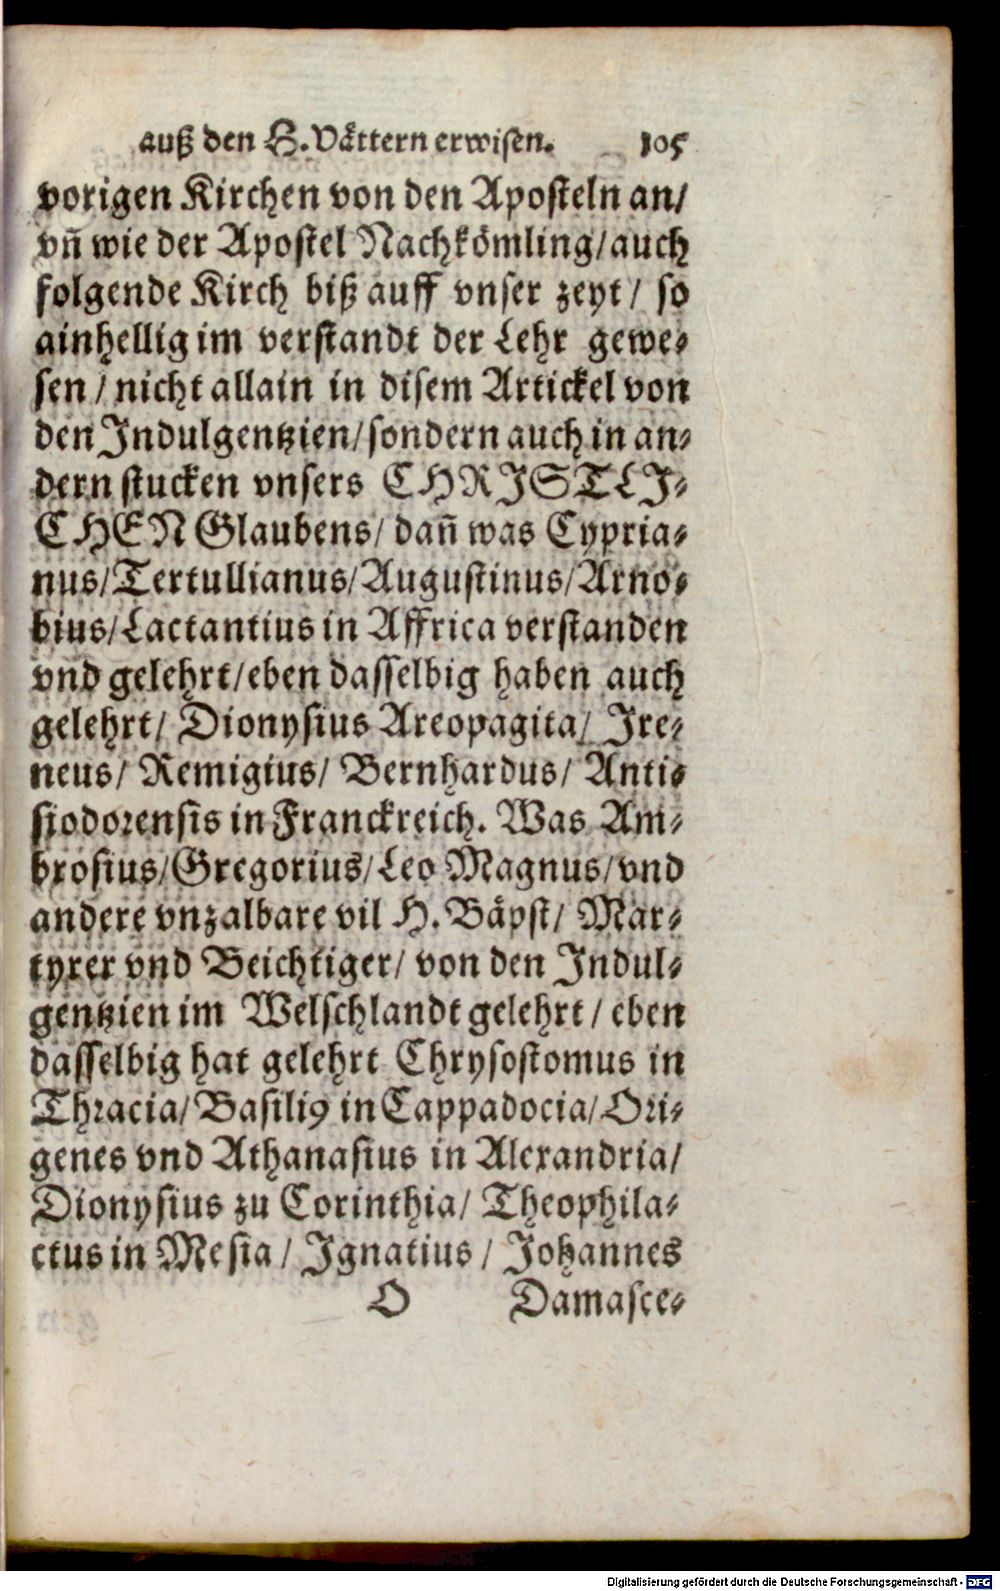 auß den H. Vättern erwisen. 105
vorigen Kirchen von den Aposteln an/
vñ wie der Apostel Nachkömling/auch
folgende Kirch biß auff vnser zeyt / so
ainhellig im verstandt der Lehr gewe-
sen / nicht allain in disem Artickel von
den Indulgentzien/sondern auch in an-
dern stucken vnsers CHRISTLI-
CHEN Glaubens/ dañ was Cypria-
nus/Tertullianus/Augustinus/Arno-
bius/Lactantius in Affrica verstanden
vnd gelehrt/eben dasselbig haben auch
gelehrt/ Dionysius Areopagita/ Ire-
neus/ Remigius/ Bernhardus/ Anti-
siodorensis in Franckreich. Was Am-
brosius/Gregorius/Leo Magnus/vnd
andere vnzalbare vil H. Bäpst/ Mar-
tyrer vnd Beichtiger/ von den Indul-
gentzien im Welschlandt gelehrt / eben
dasselbig hat gelehrt Chrysostomus in
Thracia/Basiliꝰ in Cappadocia/Ori-
genes vnd Athanasius in Alexandria/
Dionysius zu Corinthia/ Theophila-
ctus in Mesia / Ignatius / Johannes
O Damasce-
Digitalisierung gefördert durch die Deutsche Forschungsgemeinschaft - DFG